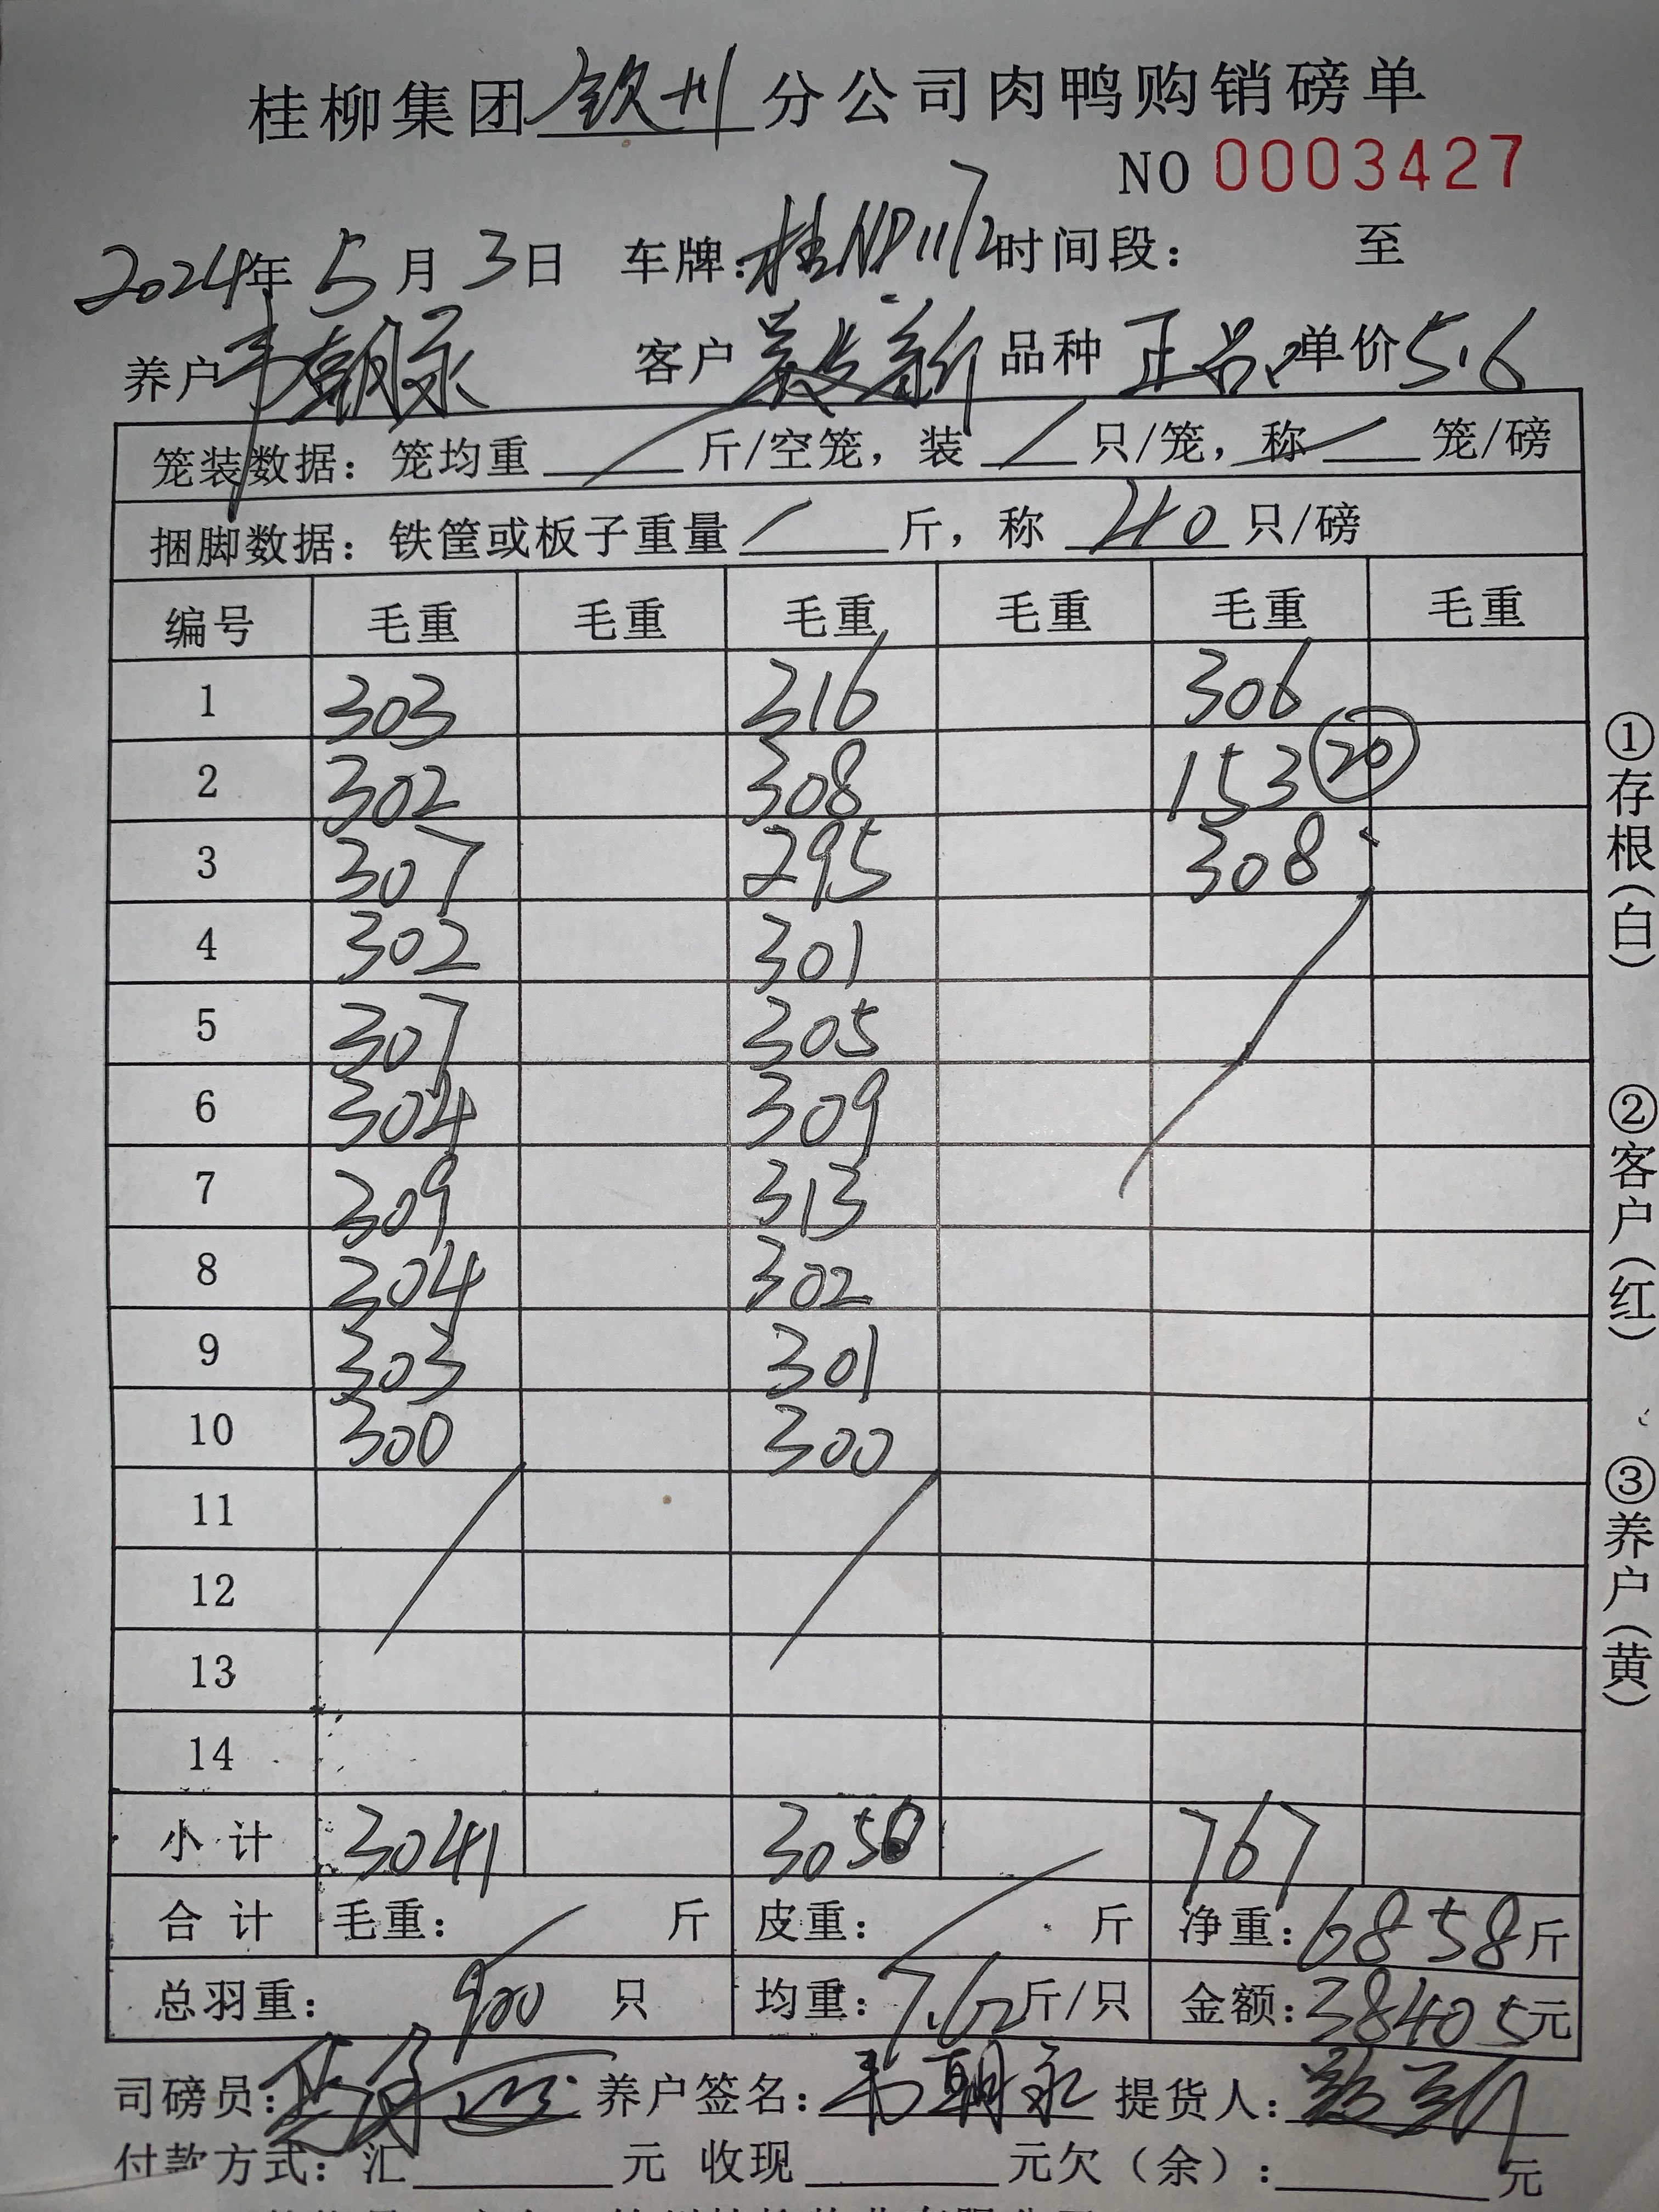 桂柳集团钦州分公司肉鸭购销磅单
NO 0003427
2024年 5月 3日 车牌:桂ND1172时间段: 至
养户韦朝永 客户 新 品种 正品 单价5.6
笼装数据: 笼均重 / 斤/空笼, 装 / 只/笼, 称 / 笼/磅
捆脚数据: 铁筐或板子重量 / 斤, 称 40 只/磅
编号 毛重 毛重 毛重 毛重 毛重 毛重
1 303 316 306
2 302 308 153 20
3 307 295 308
4 302 301
5 307 305
6 304 309
7 309 313
8 304 302
9 303 301
10 300 300
11
12
13
14
小计 3041 3050 767
合计 毛重: 斤 皮重: 斤 净重:6858斤
总羽重: 900 只 均重:7.62斤/只 金额:38405元
司磅员: 养户签名:韦朝永 提货人:
付款方式: 汇 元 收现 元欠(余): 元
①存根(白)
②客户(红)
③养户(黄)